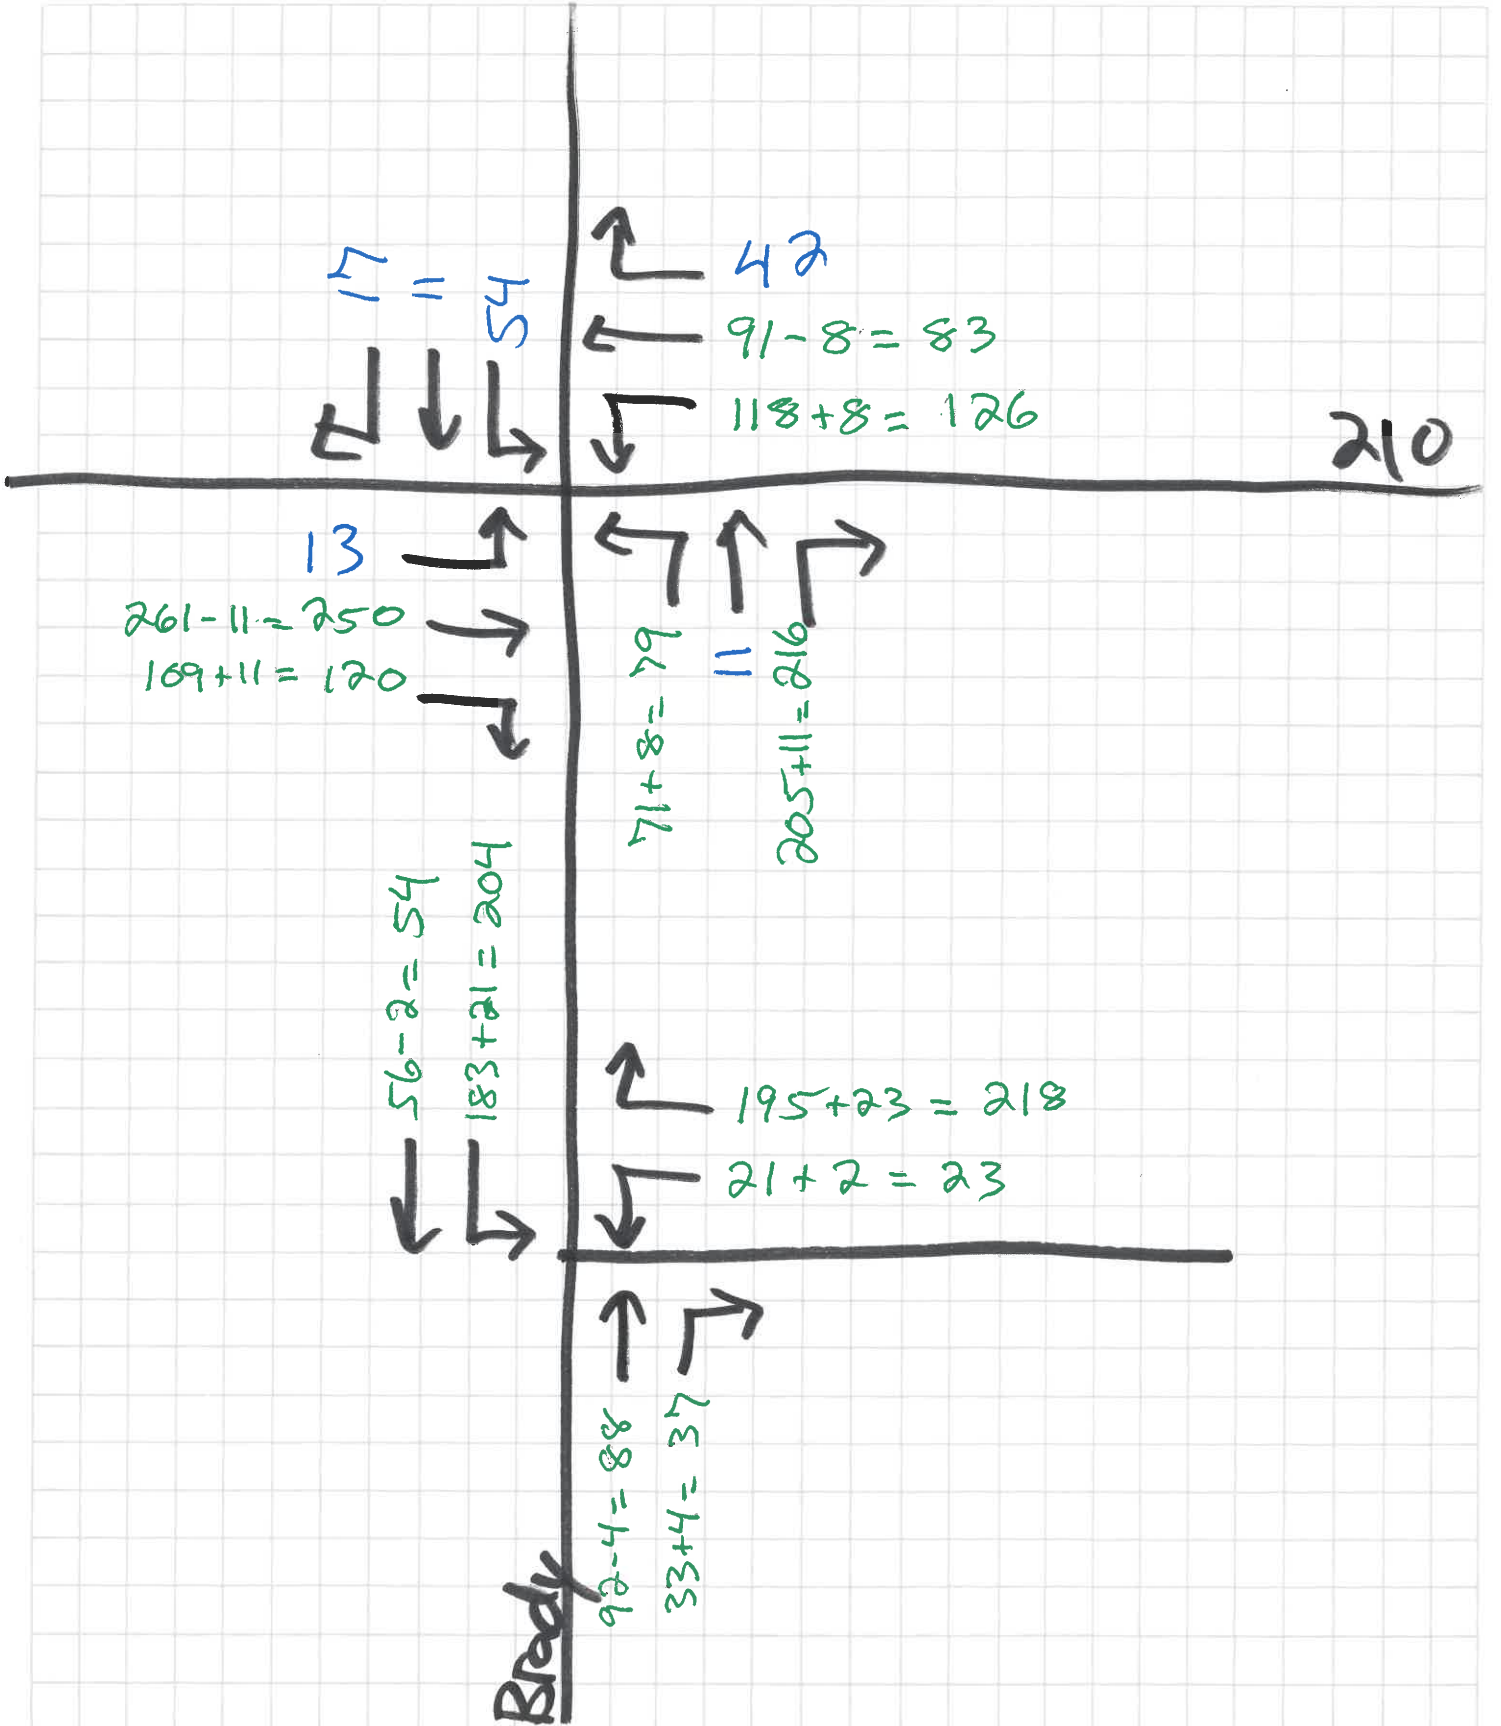 17
11
54
42
91-8=83
118+8=126
210
13
261-11=250
109+11=120
71+8=79
11
205+11=216
56-2=54
183+21=204
195+23=218
21+2=23
92-4=88
33+4=37
Brody